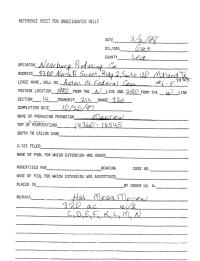 REFERENCE SHEET FOR UNDESIGNATED WELLS
DATE
OIL/GAS Gas
COUNTY Lea
OPERATOR Newburg Producing Co
ADDRESS 3300 North A Street, Bldg 2, Suite 120
LEASE NAME, WELL NO. 14 Federal Com #1
FOOTAGE LOCATION FROM THE N LINE AND FROM THE W LINE
SECTION 14 TOWNSHIP 21S RANGE 32E
COMPLETION DATE 10/20/97
NAME OF PRODUCING FORMATION Morrow
TOP OF PERFORATIONS 14360-14545
DEPTH TO CASING SHOE
C-123 FILED
NAME OF POOL FOR WHICH EXTENSION WAS ASKED
ADVERTISED FOR HEARING CASE NO.
NAME OF POOL FOR WHICH EXTENSION WAS ADVERTISED
PLACED IN BY ORDER NO. R-
REMARKS Hat Mesa Morrow
320 ac W/2
C, D, E, F, K, L, M, N